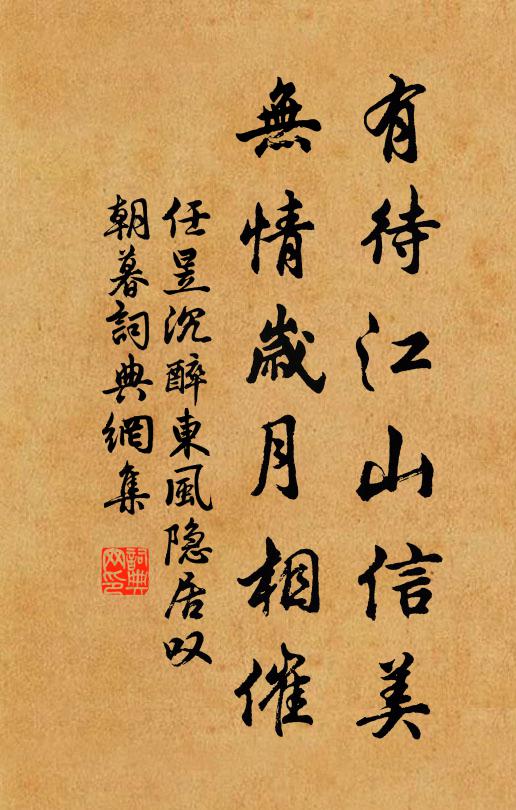 有待江山信美
無情歲月相催
任昱沉醉東風隐居叹
朝暮詞典網集
詞典網印